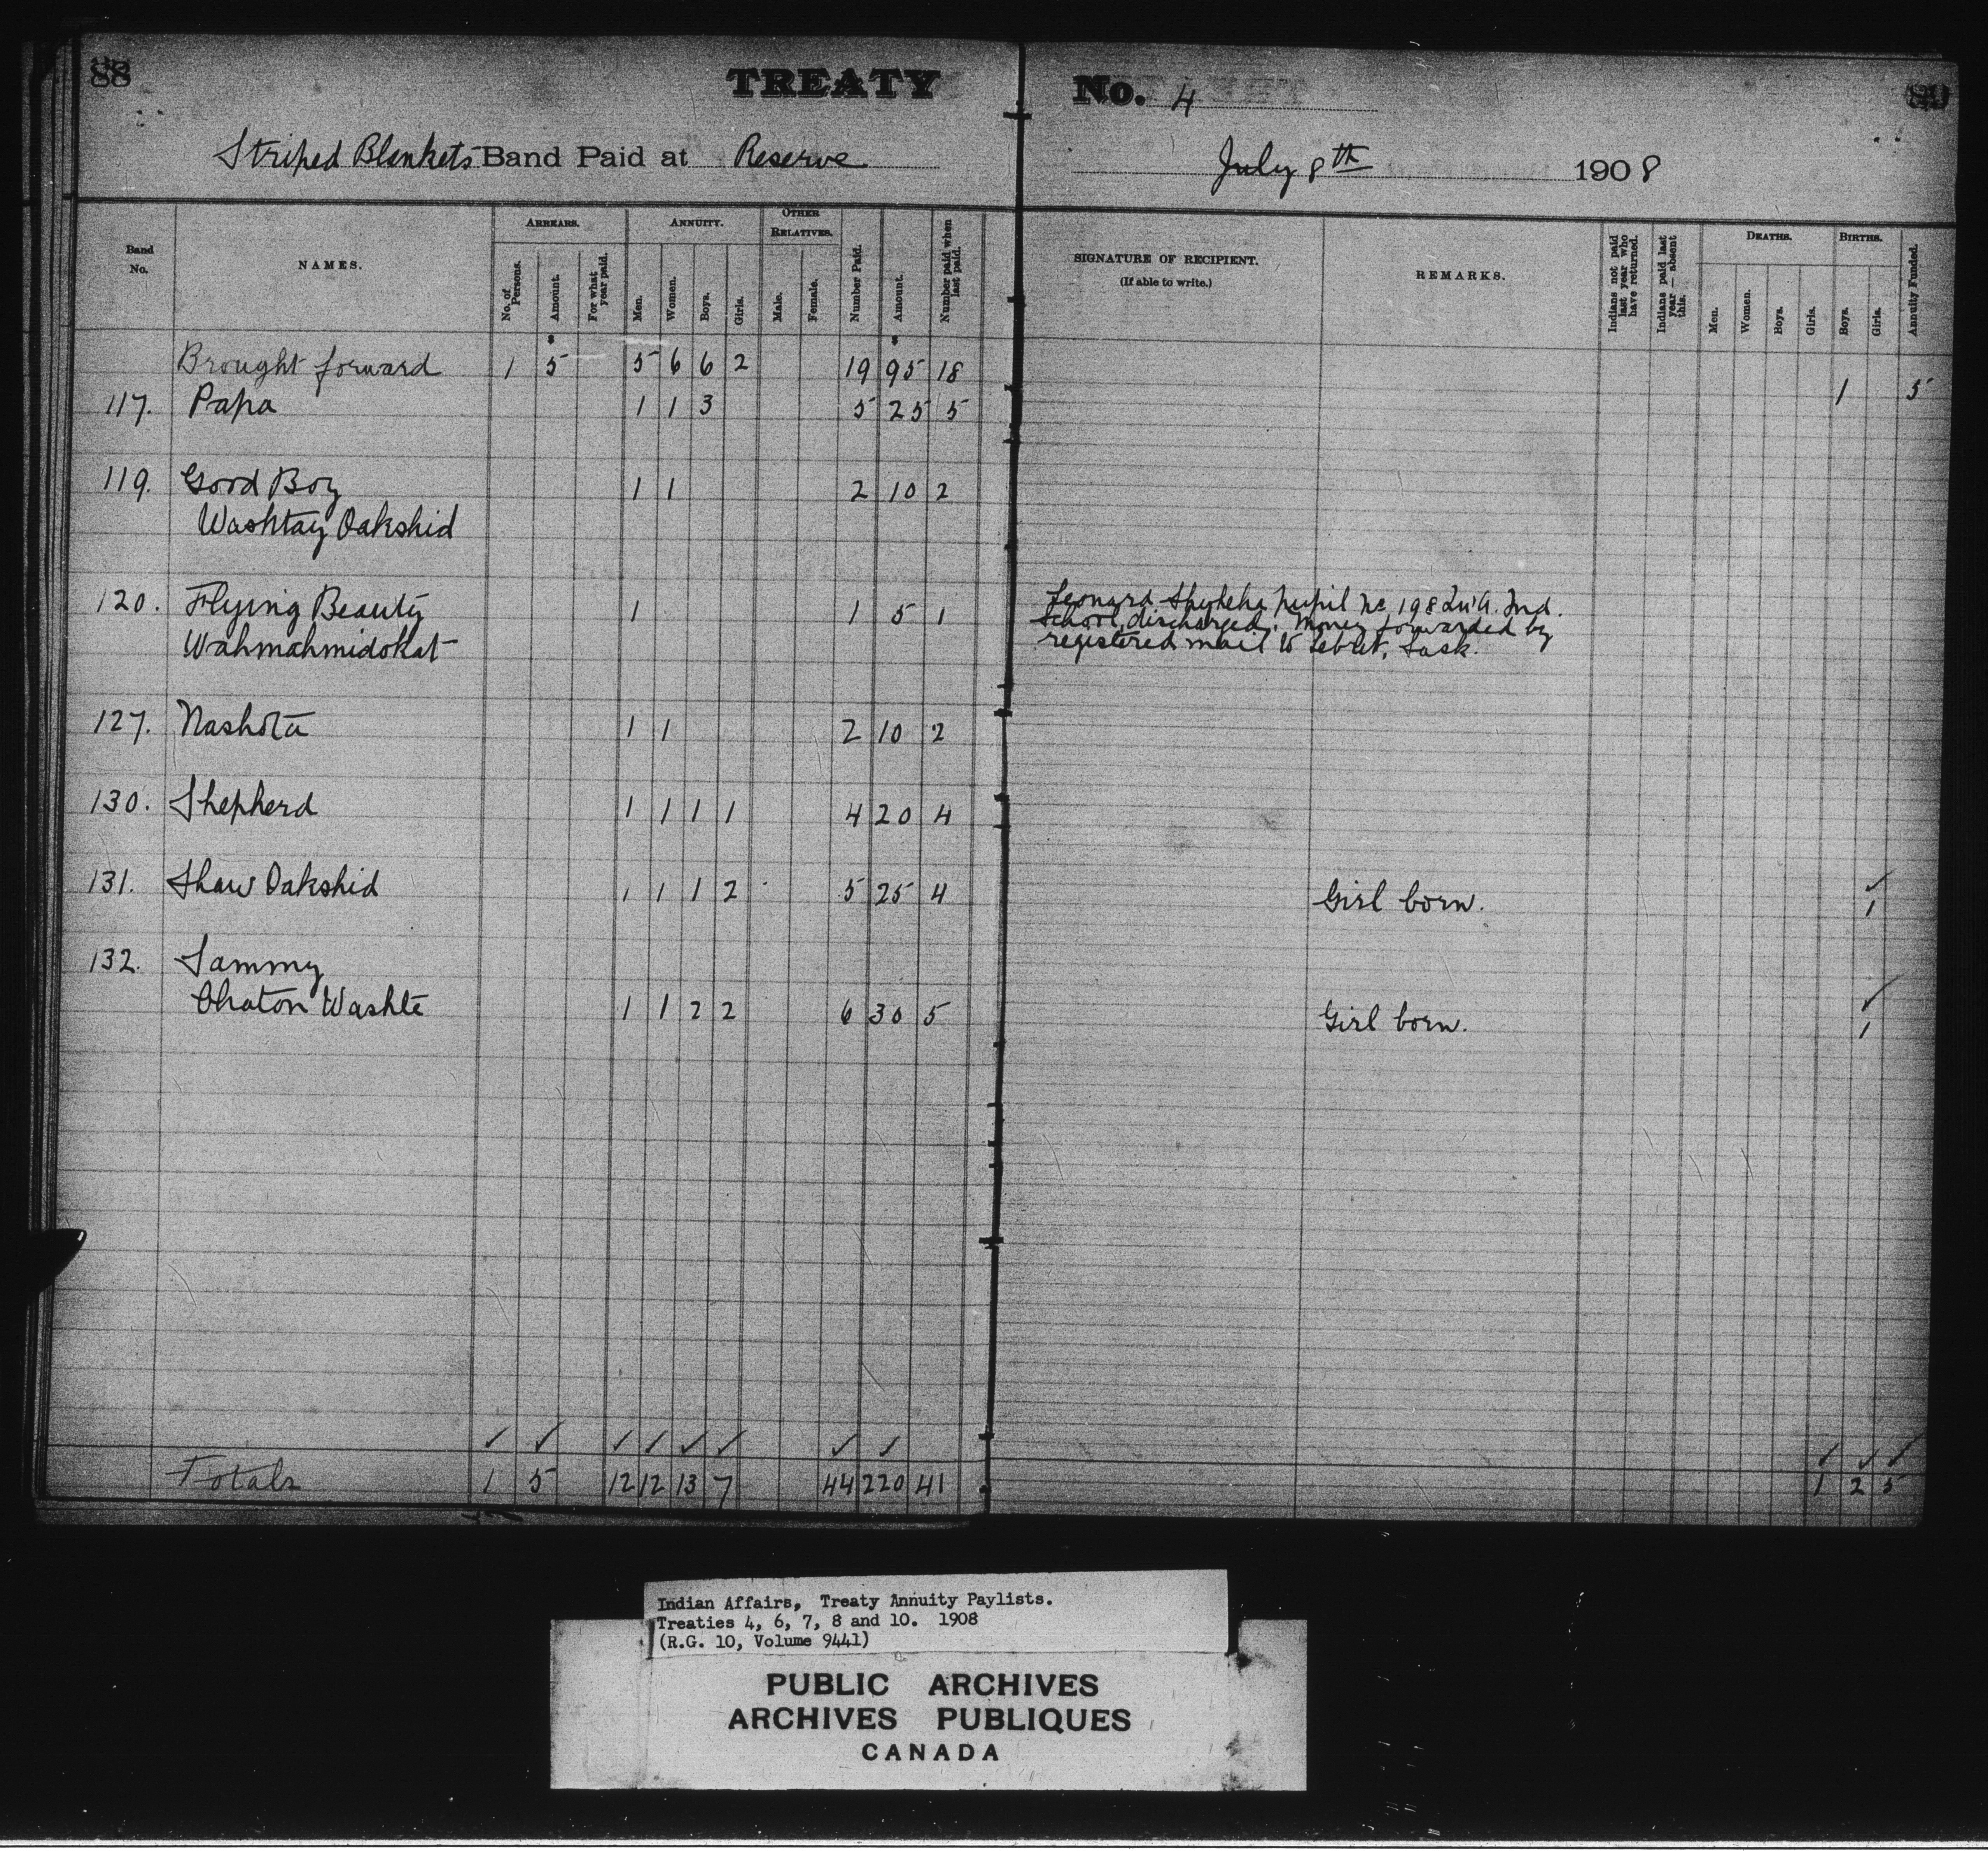 88
TREATY No. 4
Striped Blankets Band Paid at Reserve July 8th 1908
Band No.
NAMES.
ARREARS.
No. of Persons.
Amount.
For what year paid.
ANNUITY.
Men.
Women.
Boys.
Girls.
OTHER RELATIVES.
Male.
Female.
Number Paid.
Amount.
Number paid when last paid.
SIGNATURE OF RECIPIENT.
(If able to write.)
REMARKS.
Indians not paid last year who have returned.
Indians paid last year — absent this.
DEATHS.
Men.
Women.
Boys.
Girls.
BIRTHS.
Boys.
Girls.
Annuity Funded.
Brought forward 1 5 5 6 6 2 19 95 18 1 5
117. Papa 1 1 3 5 25 5
119. Good Boy 1 1 2 10 2
Washtay Oakshid
120. Flying Beauty 1 1 5 1
Wahmahmidokat
Leonard pupil No 198 Qu'A. Ind.
School, discharged. Money forwarded by
registered mail to Lebret, Sask.
127. Nashota 1 1 2 10 2
130. Shepherd 1 1 1 1 4 20 4
131. Shaw Oakshid 1 1 1 2 5 25 4 Girl born. ✓ 1
132. Sammy
Chaton Washte 1 1 2 2 6 30 5 Girl born. ✓ 1
✓ ✓ ✓ ✓ ✓ ✓ ✓ ✓ ✓ ✓ ✓
Totals 1 5 12 12 13 7 44 220 41 1 2 5
Indian Affairs, Treaty Annuity Paylists.
Treaties 4, 6, 7, 8 and 10. 1908
(R.G. 10, Volume 9441)
PUBLIC ARCHIVES
ARCHIVES PUBLIQUES
CANADA